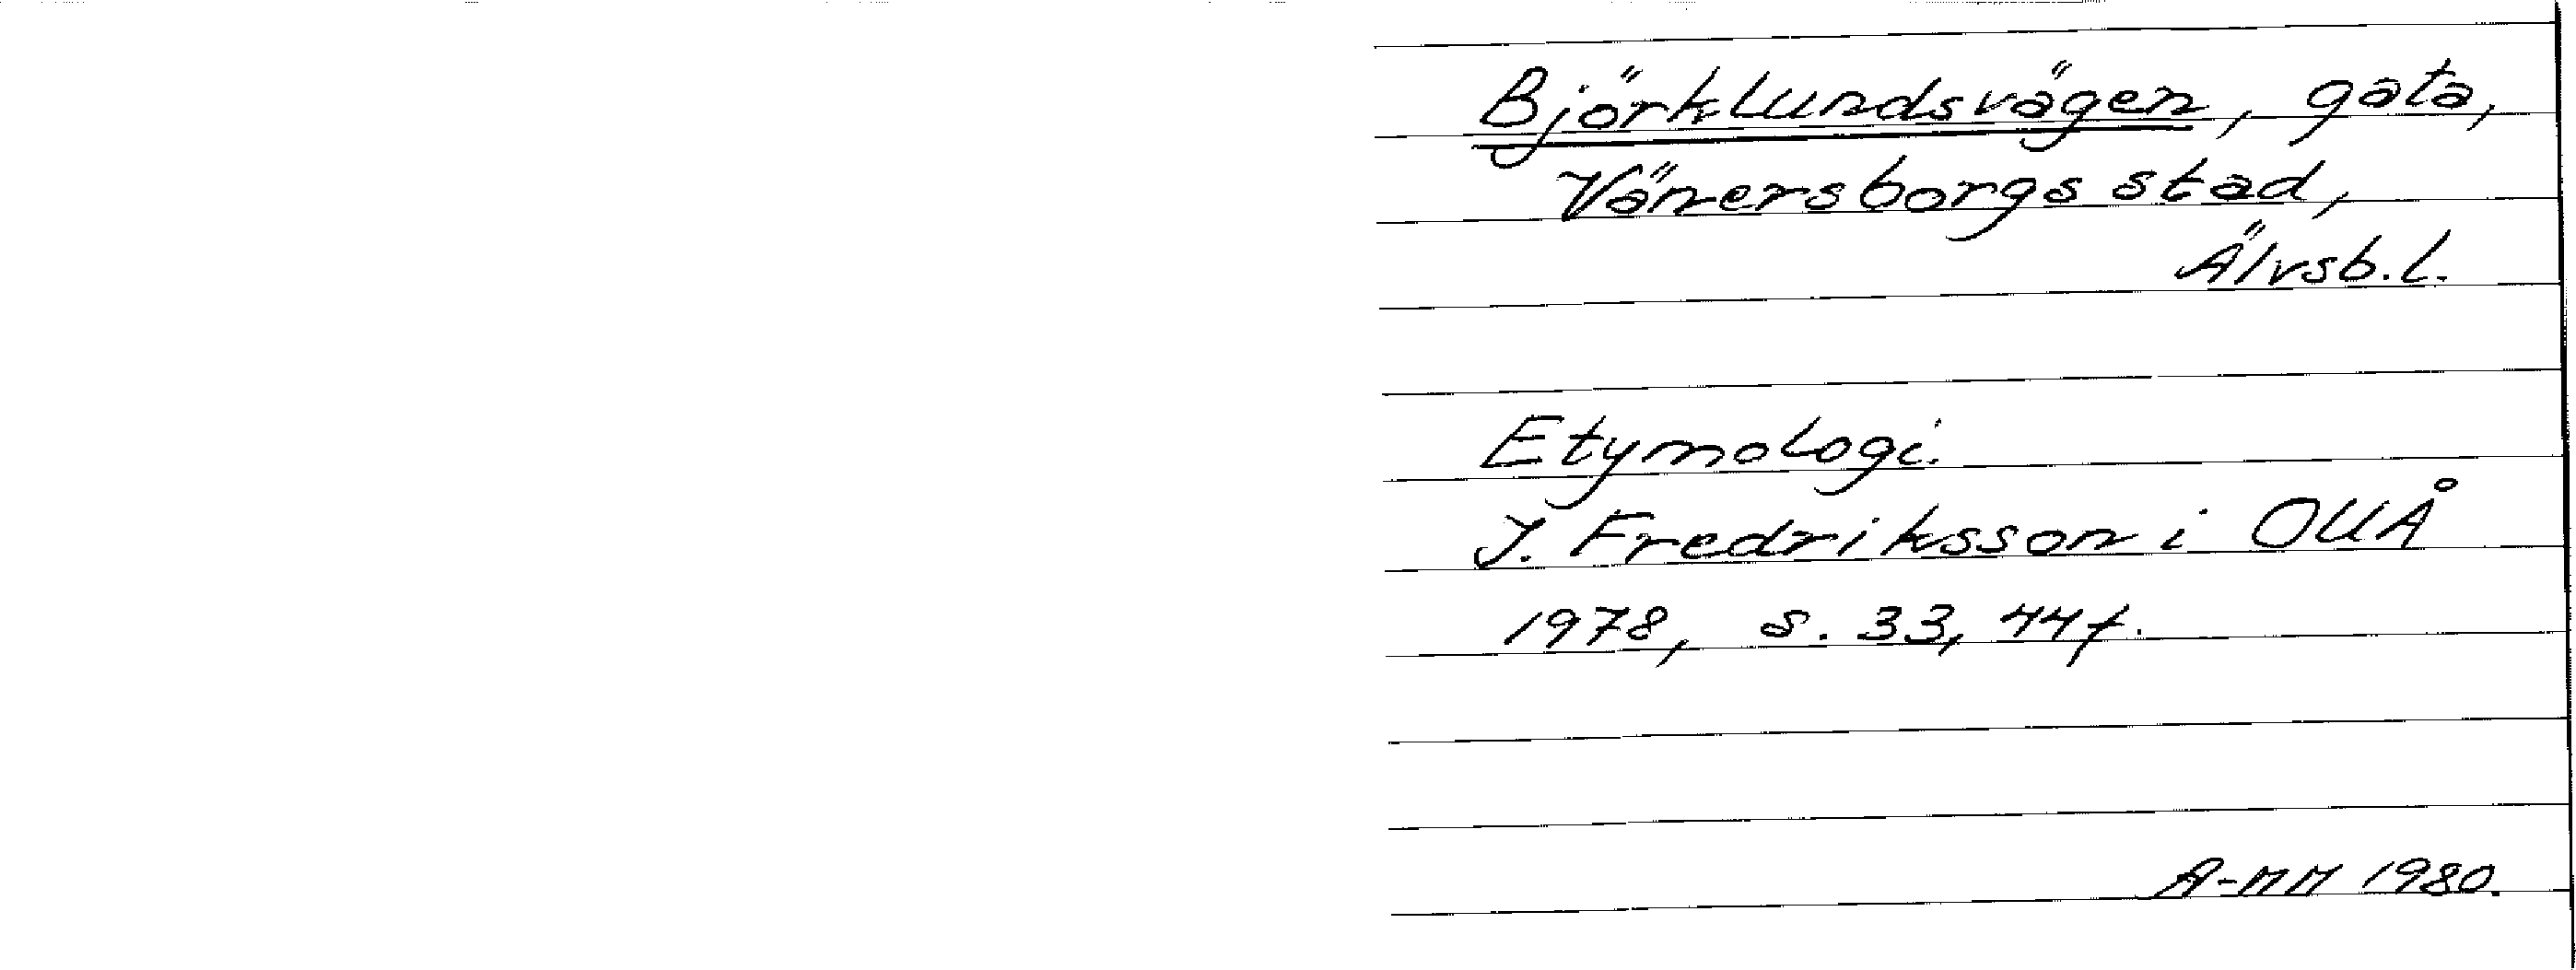 Björklundsvägen, gata,
Vänersborgs stad,
Älvsb.l.
Etymologi.
I. Fredriksson i OUÅ
1978, s. 33, 44f.
A-MM 1980.